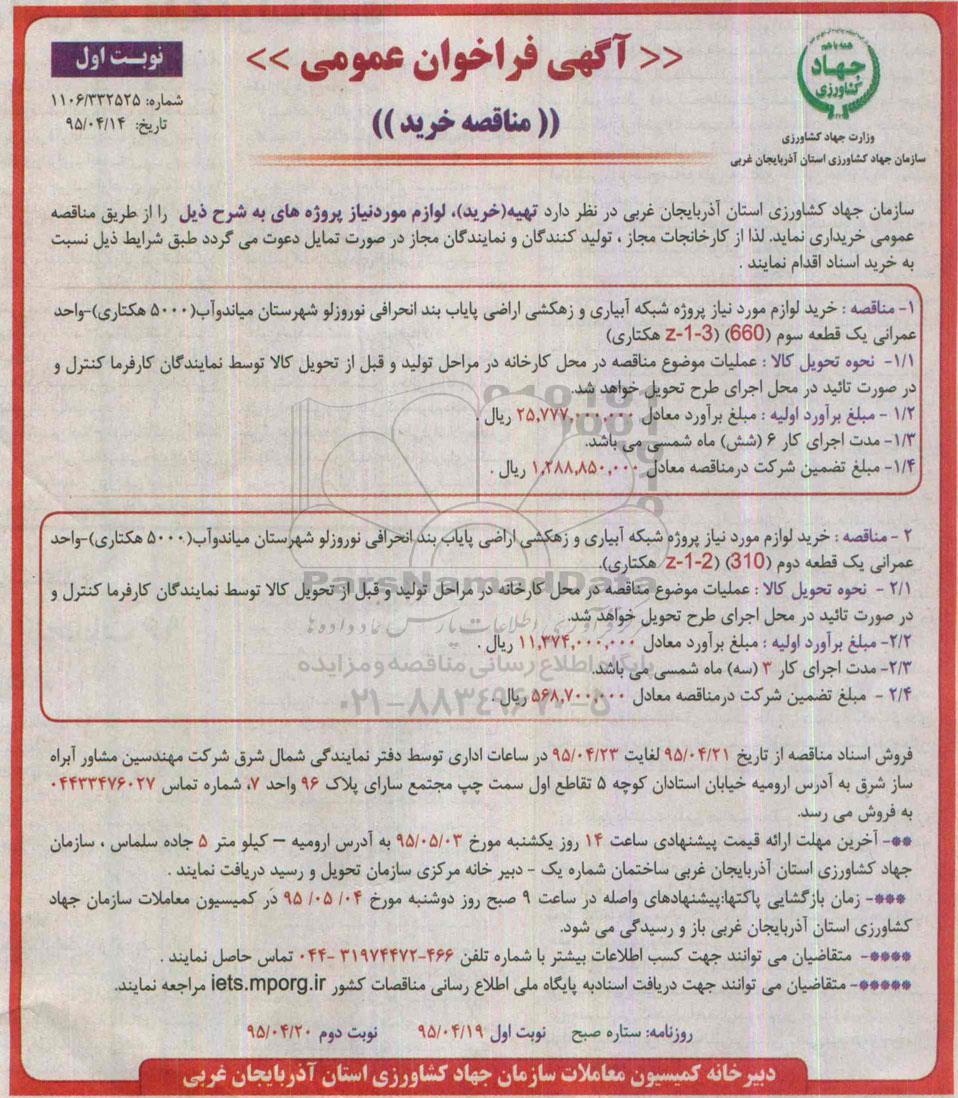 << آگهی فراخوان عمومی >>
(( مناقصه خرید ))
نوبت اول
شماره: ۱۱۰۶/۳۳۲۵۲۵
تاریخ: ۹۵/۰۴/۱۴
همه با هم
جهاد
کشاورزی
وزارت جهاد کشاورزی
سازمان جهاد کشاورزی استان آذربایجان غربی
سازمان جهاد کشاورزی استان آذربایجان غربی در نظر دارد تهیه(خرید)، لوازم موردنیاز پروژه های به شرح ذیل را از طریق مناقصه
عمومی خریداری نماید. لذا از کارخانجات مجاز ، تولید کنندگان و نمایندگان مجاز در صورت تمایل دعوت می گردد طبق شرایط ذیل نسبت
به خرید اسناد اقدام نمایند .
۱- مناقصه : خرید لوازم مورد نیاز پروژه شبکه آبیاری و زهکشی اراضی پایاب بند انحرافی نوروزلو شهرستان میاندوآب(۵۰۰۰ هکتاری)-واحد
عمرانی یک قطعه سوم (660) (z-1-3 هکتاری)
۱/۱- نحوه تحویل کالا : عملیات موضوع مناقصه در محل کارخانه در مراحل تولید و قبل از تحویل کالا توسط نمایندگان کارفرما کنترل و
در صورت تائید در محل اجرای طرح تحویل خواهد شد.
۱/۲ - مبلغ برآورد اولیه : مبلغ برآورد معادل ۲۵,۷۷۷,۰۰۰,۰۰۰ ریال .
۱/۳- مدت اجرای کار ۶ (شش) ماه شمسی می باشد.
۱/۴- مبلغ تضمین شرکت درمناقصه معادل ۱,۲۸۸,۸۵۰,۰۰۰ ریال .
۲ - مناقصه : خرید لوازم مورد نیاز پروژه شبکه آبیاری و زهکشی اراضی پایاب بند انحرافی نوروزلو شهرستان میاندوآب(۵۰۰۰ هکتاری)-واحد
عمرانی یک قطعه دوم (310) (z-1-2 هکتاری).
۲/۱ - نحوه تحویل کالا : عملیات موضوع مناقصه در محل کارخانه در مراحل تولید و قبل از تحویل کالا توسط نمایندگان کارفرما کنترل و
در صورت تائید در محل اجرای طرح تحویل خواهد شد.
۲/۲- مبلغ برآورد اولیه : مبلغ برآورد معادل ۱۱,۳۷۴,۰۰۰,۰۰۰ ریال .
۲/۳- مدت اجرای کار ۳ (سه) ماه شمسی می باشد.
۲/۴ - مبلغ تضمین شرکت درمناقصه معادل ۵۶۸,۷۰۰,۰۰۰ ریال .
ParsNamadData
پایگاه اطلاع رسانی مناقصه و مزایده
۰۲۱-۸۸۳۴۹۶۷۰-۵
فروش اسناد مناقصه از تاریخ ۹۵/۰۴/۲۱ لغایت ۹۵/۰۴/۲۳ در ساعات اداری توسط دفتر نمایندگی شمال شرق شرکت مهندسین مشاور آبراه
ساز شرق به آدرس ارومیه خیابان استادان کوچه ۵ تقاطع اول سمت چپ مجتمع سارای پلاک ۹۶ واحد ۷، شماره تماس ۰۴۴۳۳۴۷۶۰۲۷
به فروش می رسد.
**- آخرین مهلت ارائه قیمت پیشنهادی ساعت ۱۴ روز یکشنبه مورخ ۹۵/۰۵/۰۳ به آدرس ارومیه – کیلو متر ۵ جاده سلماس ، سازمان
جهاد کشاورزی استان آذربایجان غربی ساختمان شماره یک - دبیر خانه مرکزی سازمان تحویل و رسید دریافت نمایند .
***- زمان بازگشایی پاکتها:پیشنهادهای واصله در ساعت ۹ صبح روز دوشنبه مورخ ۰۴/ ۰۵/ ۹۵ در کمیسیون معاملات سازمان جهاد
کشاورزی استان آذربایجان غربی باز و رسیدگی می شود.
****- متقاضیان می توانند جهت کسب اطلاعات بیشتر با شماره تلفن ۴۶۶-۳۱۹۷۴۴۷۲ -۰۴۴ تماس حاصل نمایند .
*****- متقاضیان می توانند جهت دریافت اسنادبه پایگاه ملی اطلاع رسانی مناقصات کشور iets.mporg.ir مراجعه نمایند.
روزنامه: ستاره صبح نوبت اول ۹۵/۰۴/۱۹ نوبت دوم ۹۵/۰۴/۲۰
دبیرخانه کمیسیون معاملات سازمان جهاد کشاورزی استان آذربایجان غربی